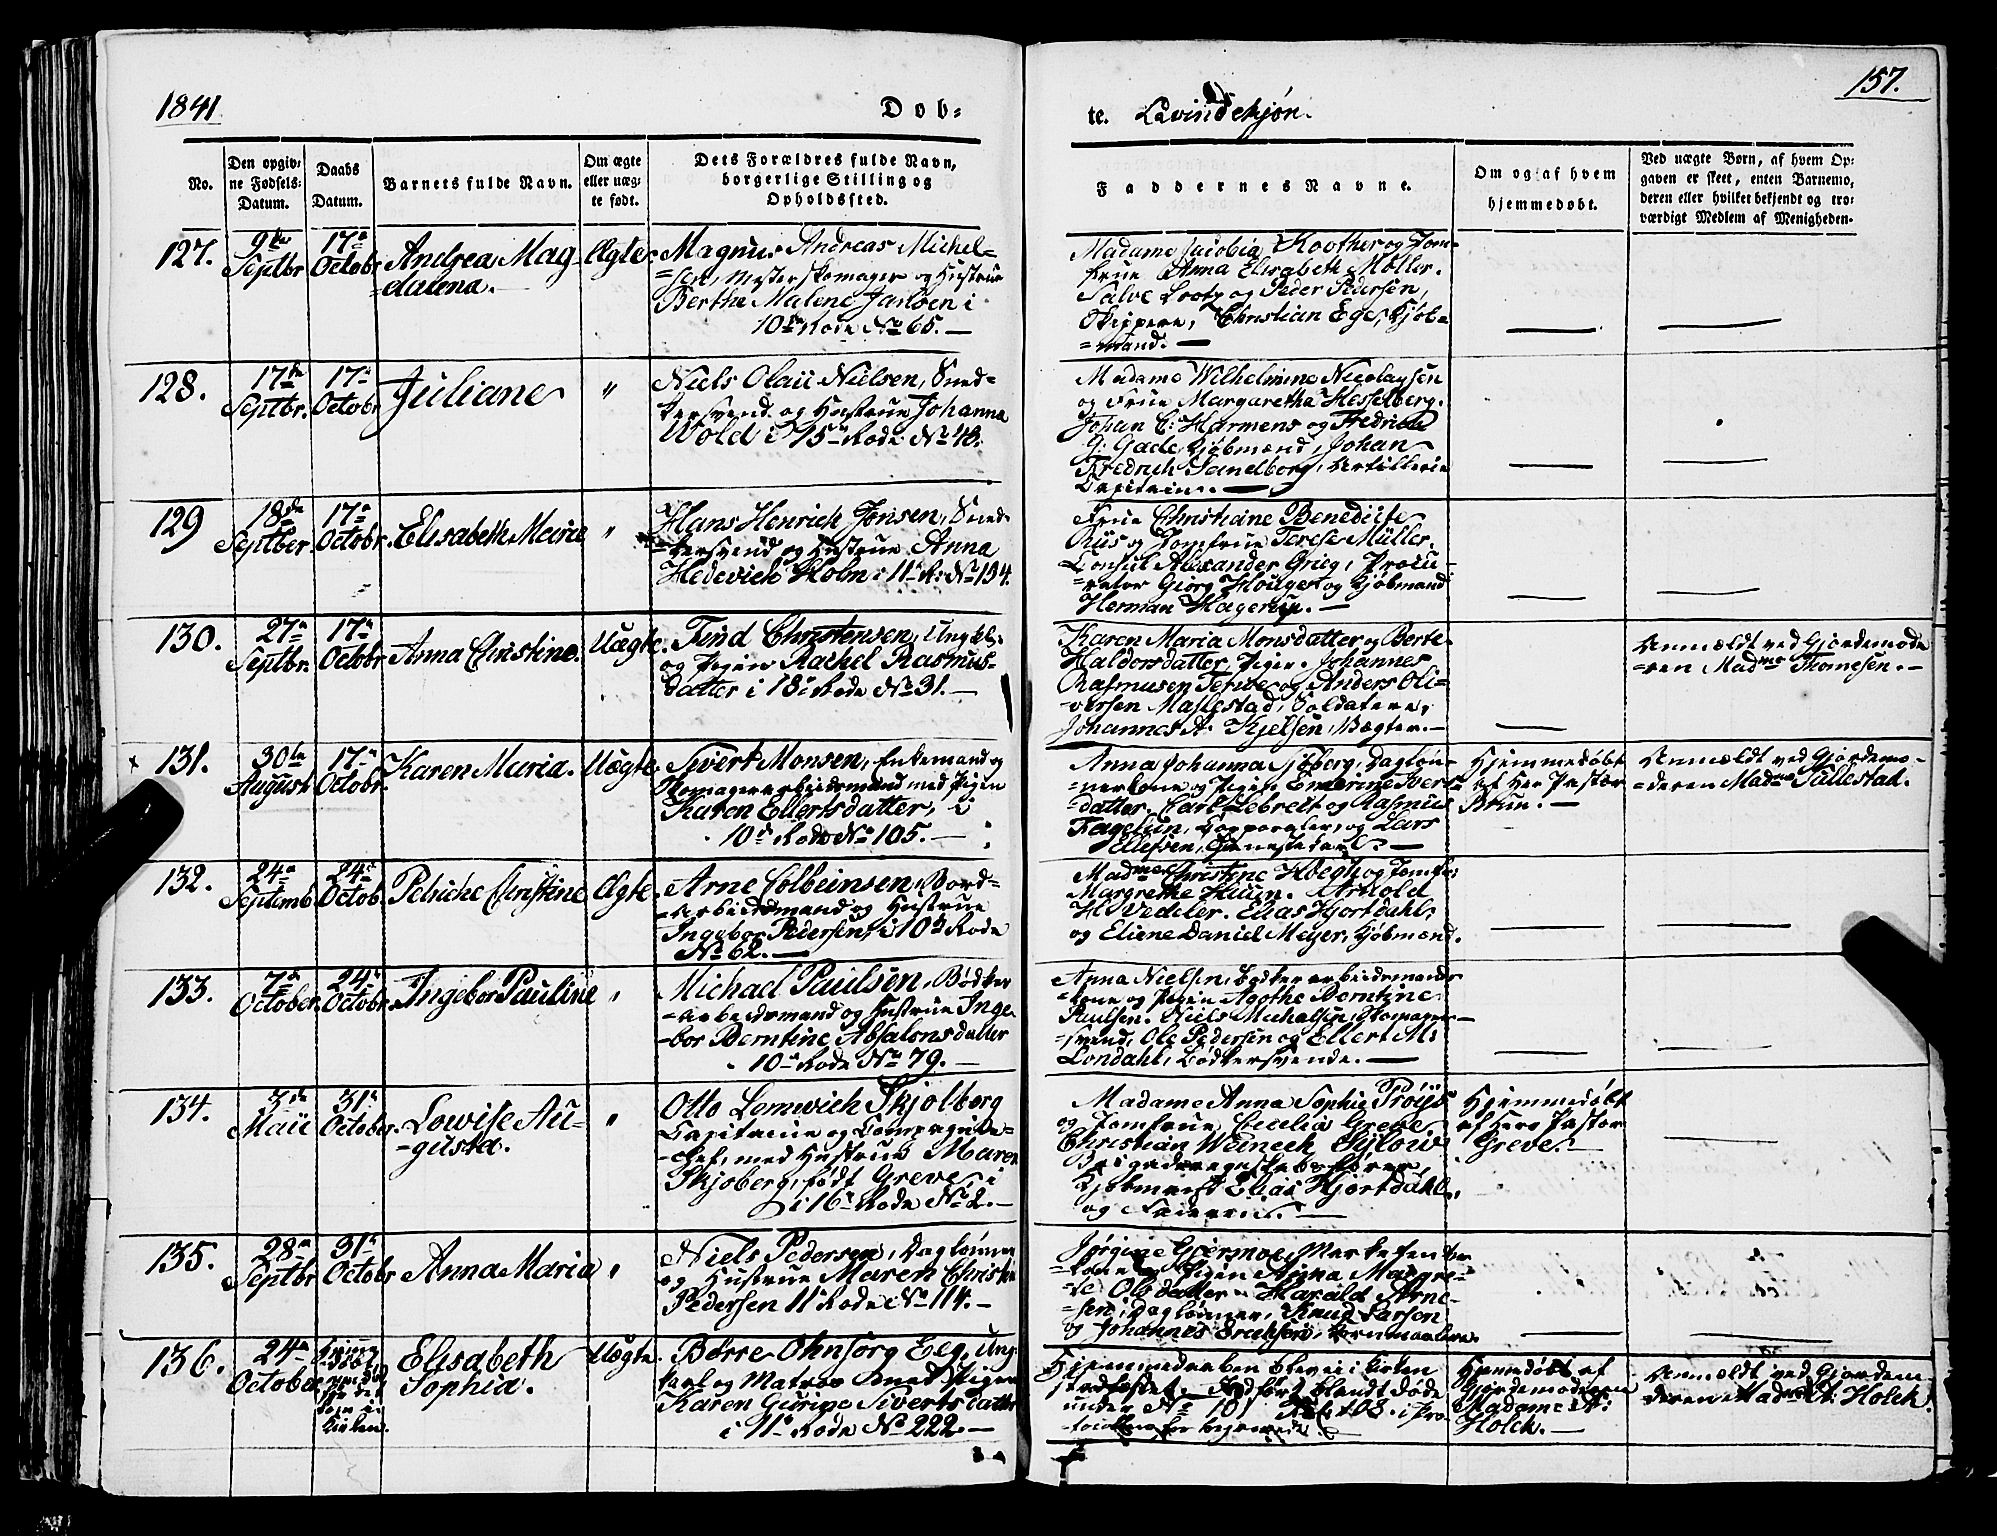 1841
Dob-
te. Qvindekjøn.
157.
No.
Den opgiv-
ne Fødsels-
Datum.
Daabs
Datum.
Barnets fulde Navn.
Om ægte
eller uæg-
te født.
Dets Forældres fulde Navn,
borgerlige Stilling og
Opholdssted.
Faddernes Navne.
Om og af hvem
hjemmedøbt.
Ved uægte Børn, af hvem Op-
gaven er skeet, enten Barnemo-
deren eller hvilket bekjendt og tro-
værdigt Medlem af Menigheden.
127.
9de
Septbr
17de
Octobr
Andrea Mag-
=dalena.
Ægte.
Magnus Andreas Michel-
=sen, Mester Skomager og Hustrue
Berthe Malene Jansen i
10de Rode No 65.
Madame Jacobia Koother og Jom-
frue Anna Elisabeth Möller.
Salve og Peder Pedersen,
Skippere, Christian Ege, Kjøb-
=mand.
128.
17de
Septbr.
17de
Octobr
Juliane
"
Niels Olaii Nielsen, Sned-
kersvend og Hustrue Johanna
Wold i 15de Rode No 48.
Madame Wilhelmine Nicolaysen
og Frue Margaretha Hesselberg.
Johan C: Harmens og Fredrich
G: Gade Kjøbmænd, Johan
Fredrich Sandborg, Artillerie
Capitain.
129
18de
Septber.
17de
Octobr.
Elisabeth Marie
"
Hans Henrich Jonsen, Sned-
=kersvend og Hustrue Anna
Hedevich Holm i 11te R: No 134.
Frue Christiane Benedicte
Riis og Jomfrue Terese Müller.
Consul Alexander Grieg, Procu-
=rator Giørg Houger og Kjøbmand
Herman Hagerup.
130.
27de
Septbr.
17de
Octobr
Anna Christine.
Uægte.
Find Christensen, Ungkl.
og Pigen Rachel Rasmus-
datter i 18de Rode No 31.
Karen Maria Monsdatter og Berte
Haldorsdatter, Piger. Johannes
Rasmusen og Anders Oli-
=versen Maslestad, Soldatere,
Johannes A. Kjelsen, Vægter.
Anmældt ved Gjordemode
=ren Madme Thomesen.
131.
30te
August
17de
Octobr.
Karen Maria.
Uægte.
Sivert Monsen, Enkemand og
Skomagerarbeidsmand med Pigen
Karen Ellertsdatter, i
10de Rode No 105.
Anna Johanna Sjöberg, Dagløn-
=nerkone og Pigen Emerine Ivers-
datter. Carl Lebrecht og Rasmus
Fagelun, Corporaler, og Lars
Ellefsen, Tjenestekarl.
Hjemmedøbt
af Her Pastor
Brun.
Anmældt ved Gjordemo-
=deren Madme Tallestad.
132.
24de
Septemb.
24de
Octob.
Petriche Christine
Ægte.
Arne Colbeinsen, Bord-
=arbeidsmand og Hustrue
Ingebor Pedersen, i 10de Rode
No 62.
Madme Christine Høegh og Jomfr:
Margrethe Huun. Arnold
H: Vedeler. Elias Hjortdahl,
og Eliene Daniel Meyer, Kjøbmænd.
133.
7de
October.
24de
Octobr.
Ingebor Pauline
"
Michael Paulsen, Bødker
=arbeidsmand og Hustrue Inge-
-bor Berntine Absalonsdatter
10de Rode No 79.
Anna Nielsen, Bødkerarbeidsmands-
=kone og Pigen Agothe Berntine
Paulsen. Niels Michalsen, Skomager-
=svend, Ole Pedersen og Ellert M:
Londahl, Bødkersvende.
134.
3de
Maii
31te
October.
Lowise Au-
-gusta.
"
Otto Lemwich Skjolborg
Capitaine og Compagnie-
-chef, med Hustrue Maren
Skjoberg, født Greve, i
i 16de Rode No 2.
Madame Anna Sophie Pröys
og Jomfrue Cecelia Greve
Christian Weineck Sylow
Brigaderegnskabsfører,
Kjøbmand Elias Hjortdahl,
og Faderen.
Hjemmedøbt
af Herr Pastor
Greve.
135.
28de
Septbr
31te
Octobr
Anna Maria
"
Niels Pedersen, Daglønner
og Hustrue Maren Christine
Pedersen 11te Rode No 114.
Jørgine Marketenter
=kone og Pigen Anna Margre-
=te Olsdatter. Harald Arne-
=sen, Daglønner, Knud Larsen
og Johannes Erichsen, Kornmaalere.
136.
24de
October
Hjemme-
døbt
Kirken.
Elisabeth
Sophia.
Uægte.
Børre Ohnsorg Eeg, Ung-
karl og Matros med Pigen
Karen Gurine Sivertsdatter
i 11te Rode No 222.
Hjemmedaaben blev ei i Kirken
stadfæstet. Indført blandt døde
under No 101 Fol: 108 i Pro-
tocollen for begravede.
Hjemmedøbt af
Gjordemoderen
Madame A:
Holck.
Anmældt ved Gjordem
deren Madme A: Holck.